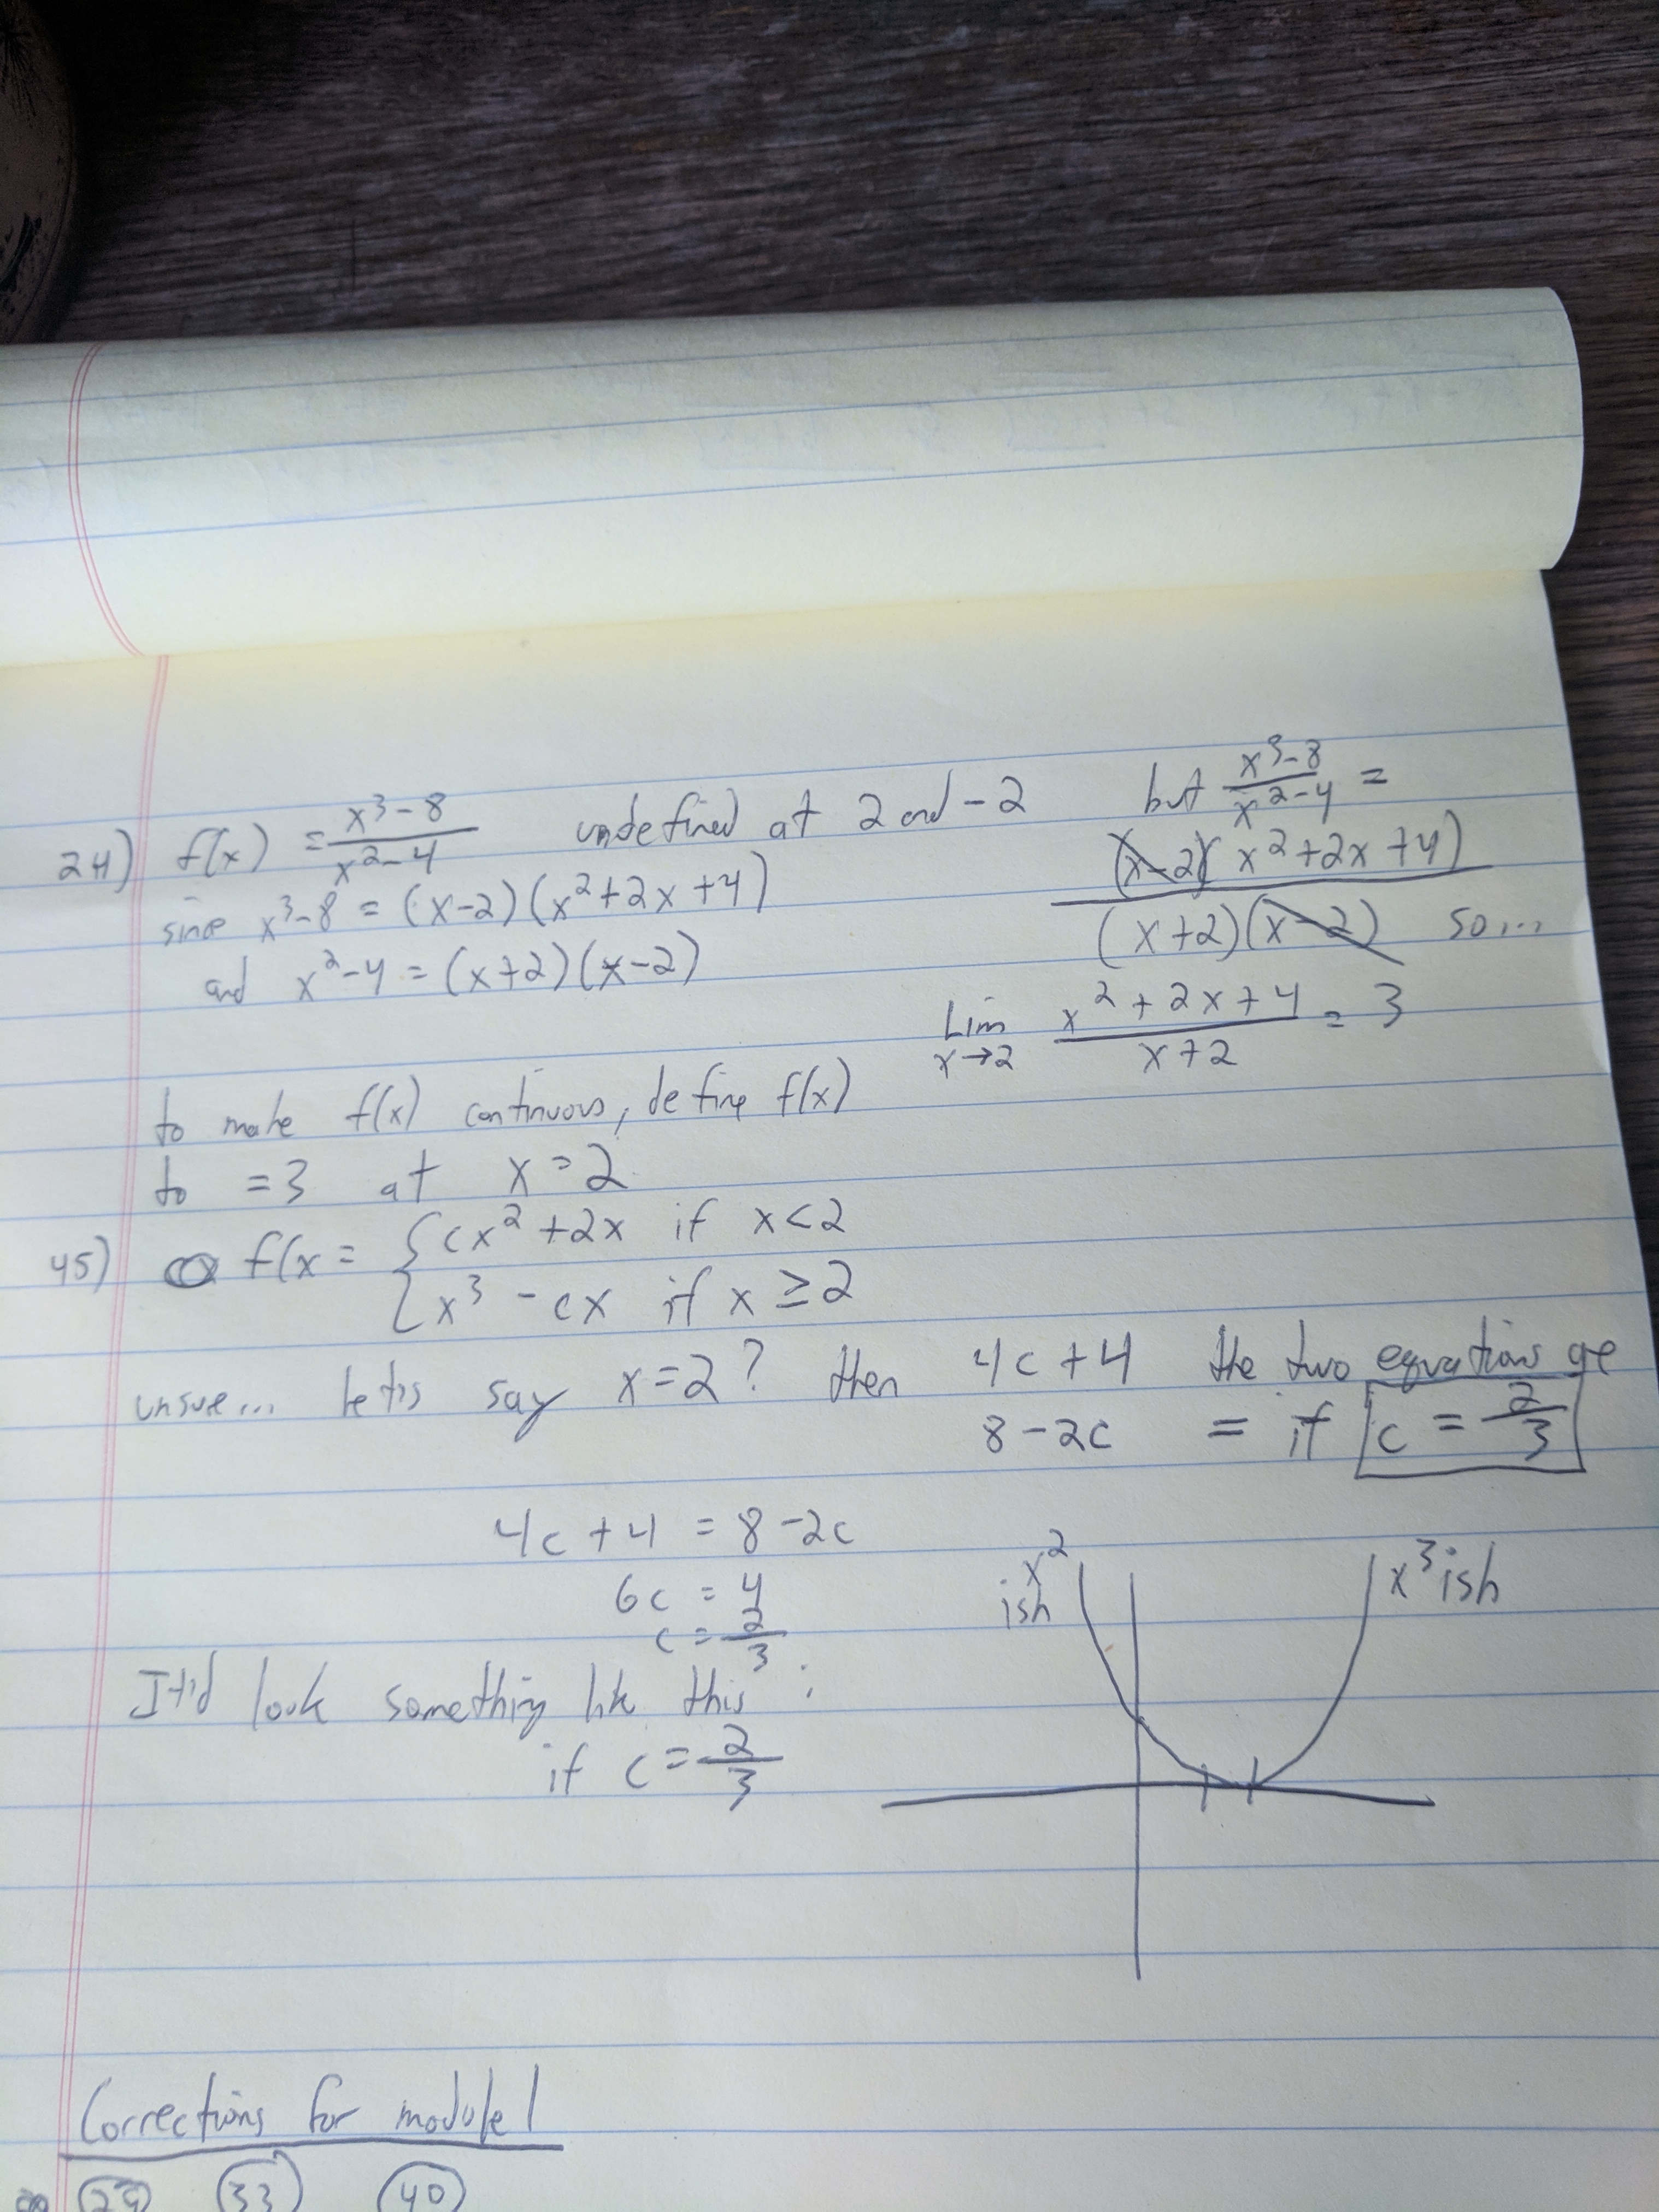 24) f(x) = x³-8 / x²-4 undefined at 2 and -2 but x³-8 / x²-4 =
since x³-8 = (x-2)(x²+2x+4) (x-2)(x²+2x+4) / (x+2)(x-2) so...
and x²-4 = (x+2)(x-2)
Lim x→2 x²+2x+4 / x+2 = 3
to make f(x) continuous, define f(x)
to =3 at x=2
45) f(x = { cx²+2x if x<2
x³-cx if x≥2
unsure... let's say x=2? then 4c+4 the two equations are
8-2c = if c = 2/3
4c+4 = 8-2c
6c = 4
c = 2/3
It'd look something like this:
if c = 2/3
x² ish
x³ ish
Corrections for module 1
29 33 40